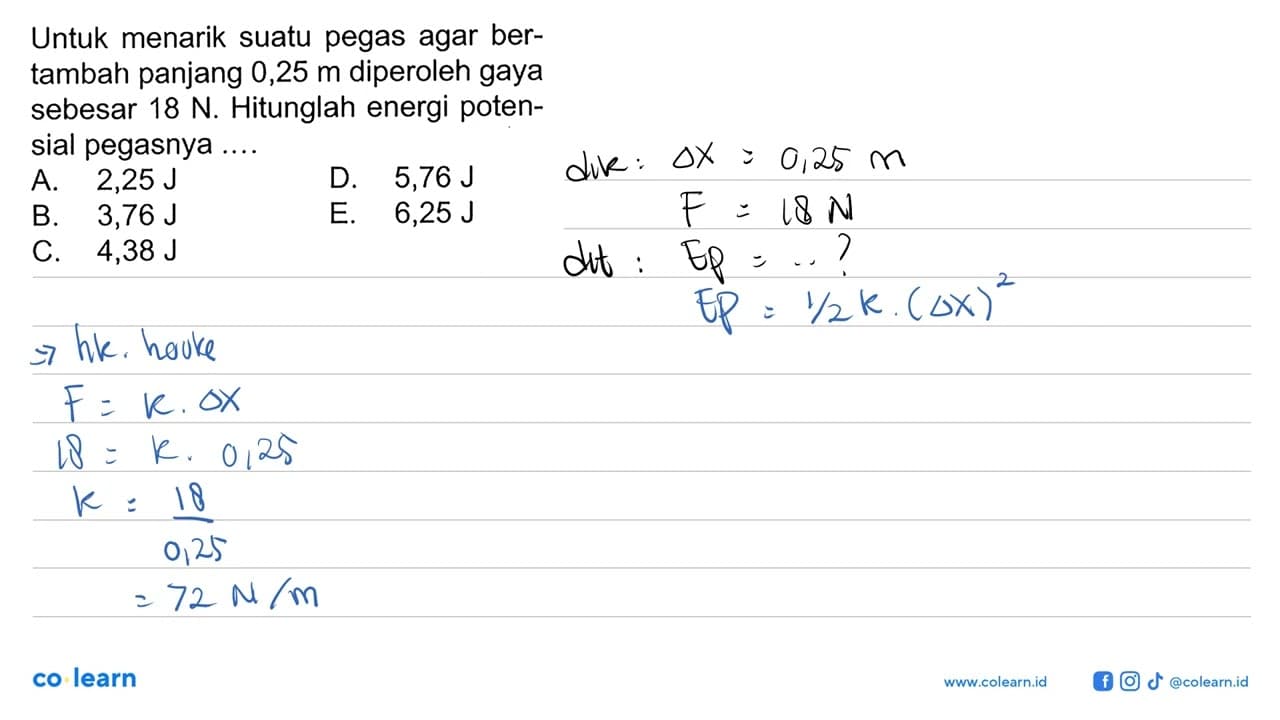 Untuk menarik suatu pegas agar ber-
tambah panjang 0,25 m diperoleh gaya
sebesar 18 N. Hitunglah energi poten-
sial pegasnya ....
A. 2,25 J
B. 3,76 J
C. 4,38 J
D. 5,76 J
E. 6,25 J
dik: Δx = 0,25 m
F = 18 N
dit: Ep = ..?
Ep = 1/2 k. (Δx)²
=> hk. hooke
F = k. Δx
18 = k. 0,25
k = 18
0,25
= 72 N/m
co learn
www.colearn.id
@colearn.id